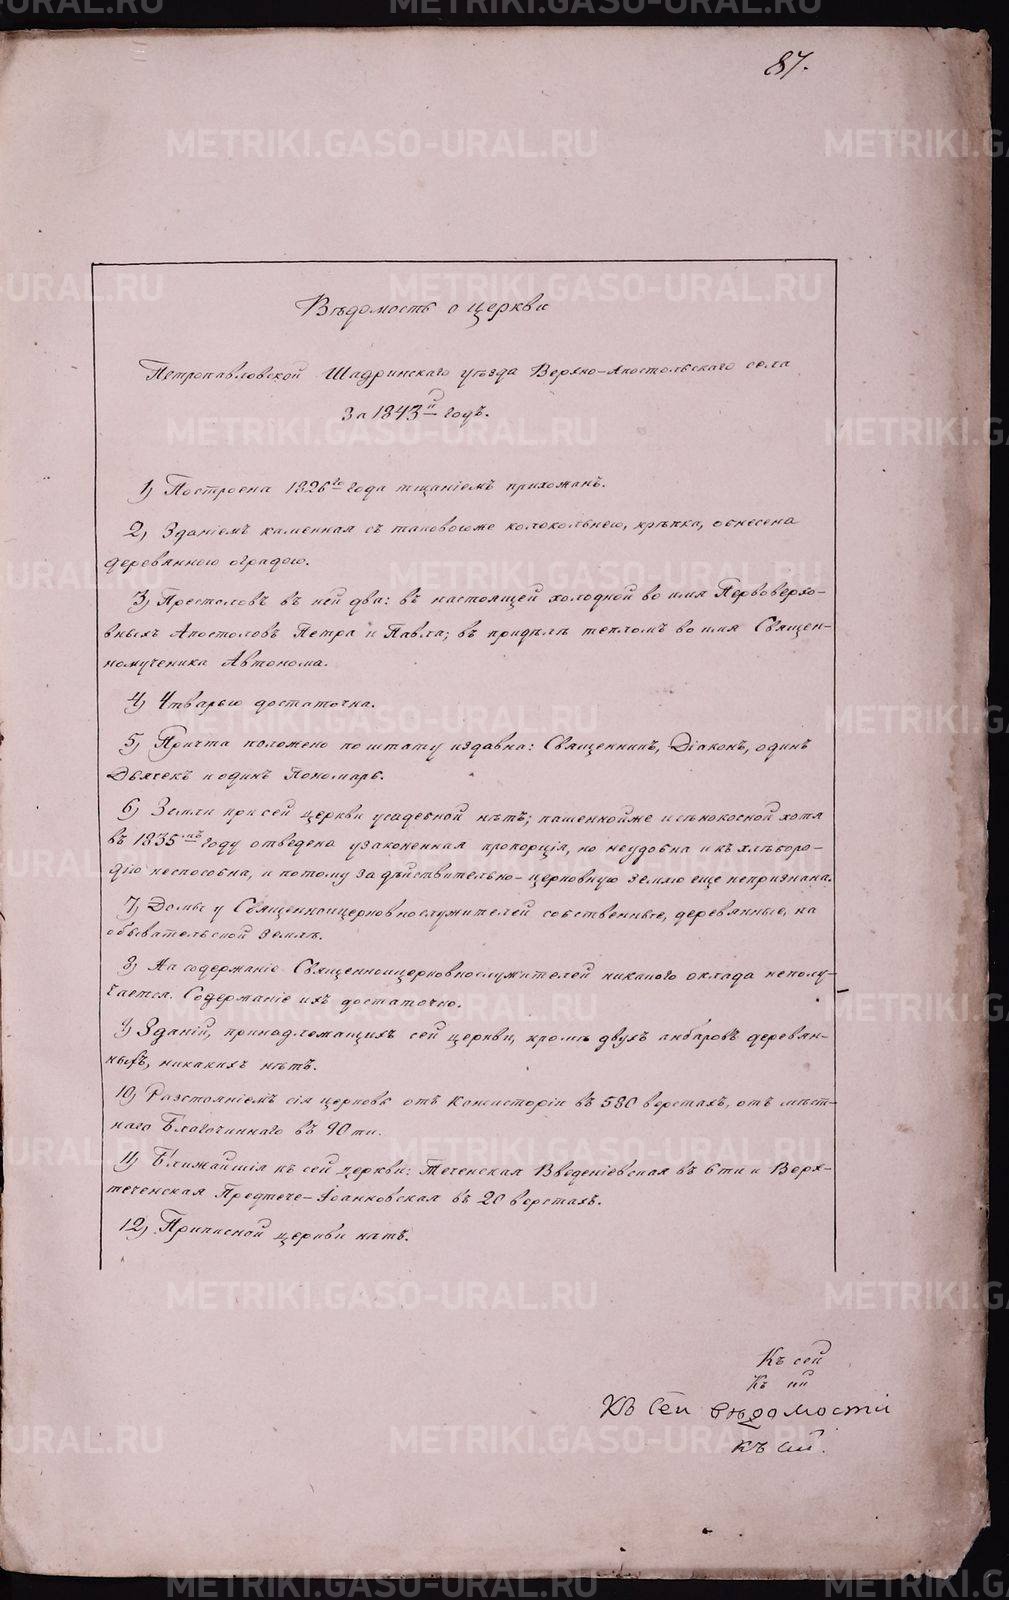 87.
Вѣдомость о церкви
Петропавловской Шадринскаго уѣзда Верхно-Апостольскаго села
За 1843й годъ.
1) Построена 1826го года тщаніемъ прихожанъ.
2) Зданіемъ каменная съ таковоюже колокольнею, крѣпка, обнесена
деревянною оградою.
3) Престоловъ въ ней два: въ настоящей холодной во имя Первоверхо-
вныхъ Апостоловъ Петра и Павла; въ придѣлѣ тепломъ во имя Священ-
номученика Автонома.
4) Утварью достаточна.
5) Причта положено по штату издавна: Священникъ, Діаконъ, одинъ
Дьячекъ и одинъ Пономарь.
6) Земли при сей церкви усадебной нѣтъ; пашеннойже и сѣнокосной хотя
въ 1835мъ году отведена узаконенная пропорція, но неудобна и къ хлѣборо-
дію неспособна, и потому за дѣйствительно-церковную землю еще непризнана.
7) Домы у Священноицерковнослужителей собственные, деревянные, на
обывательской землѣ.
8) На содержаніе Священноицерковнослужителей никакого оклада неполу-
чается. Содержаніе ихъ достаточно.
9) Зданій, принадлежащихъ сей церкви, кромѣ двухъ анбаровъ деревян-
ныхъ, никакихъ нѣтъ.
10) Разстояніемъ сія церковь отъ Консисторіи въ 580 верстахъ, отъ мѣст-
наго Благочиннаго въ 90ти.
11) Ближайшія къ сей церкви: Теченская Введеніевская въ 6ти и Верх-
теченская Предтече-Іоанновская въ 20 верстахъ.
12) Приписной церкви нѣтъ.
Къ сей
Къ
Къ сей вѣдомости
къ сей.
METRIKI.GASO-URAL.RU